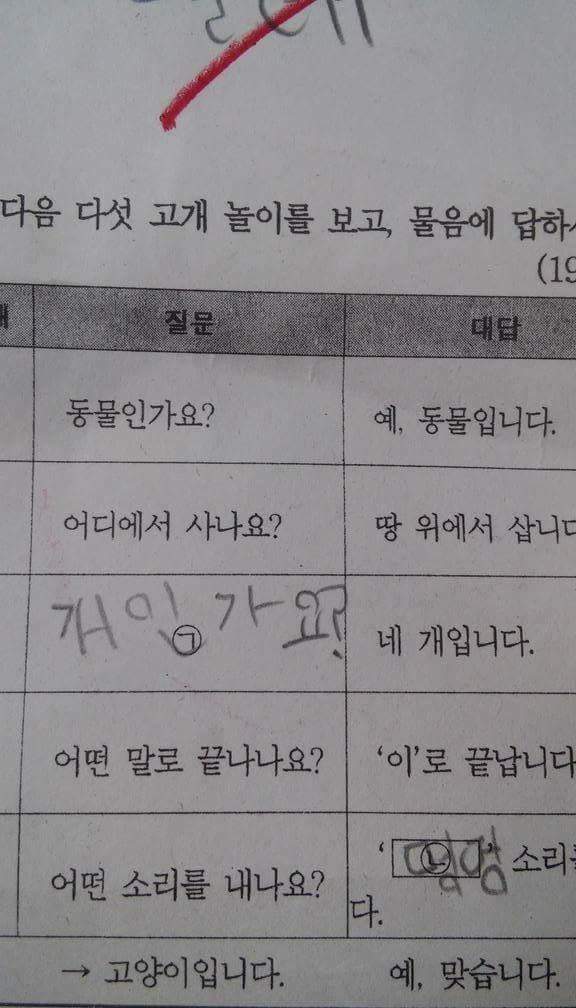 다음 다섯 고개 놀이를 보고, 물음에
(19
질문 대답
동물인가요? 예, 동물입니다.
어디에서 사나요? 땅 위에서
㉠ 가요? 네 개입니다.
어떤 말로 끝나나요? '이'로 끝납니다
어떤 소리를 내나요? '㉡ 멍멍' 소리를
다.
→ 고양이입니다. 예, 맞습니다.